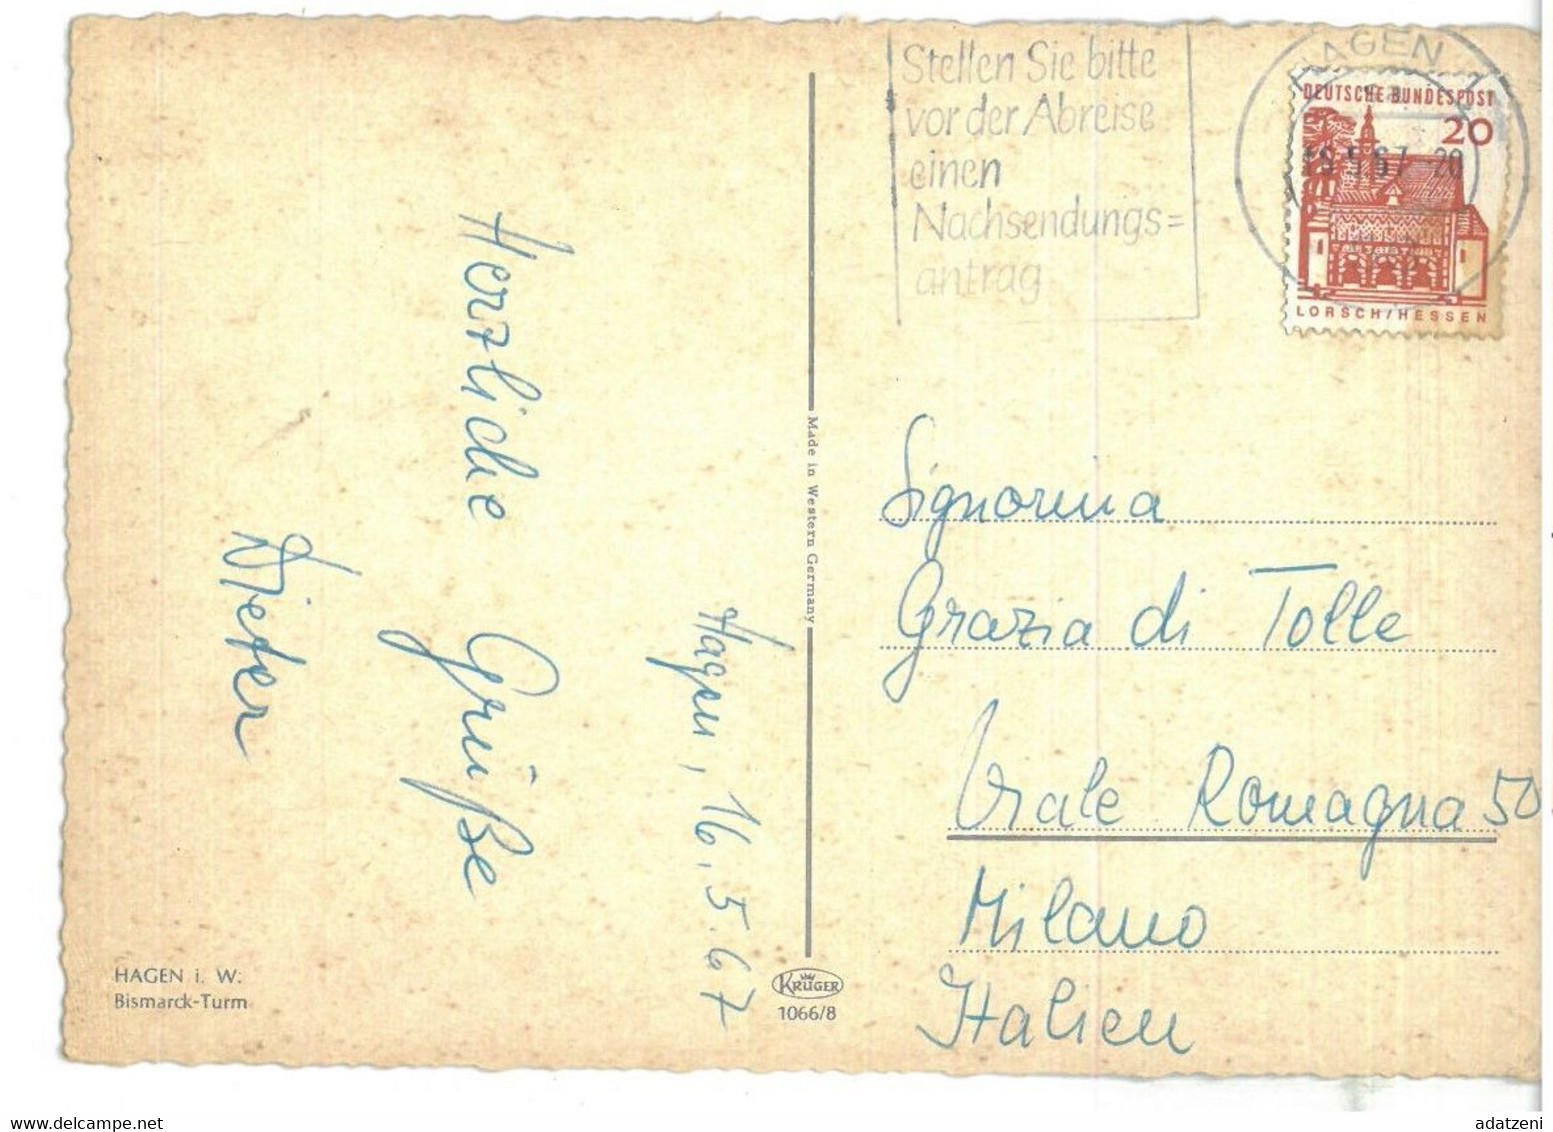 Stellen Sie bitte
vor der Abreise
einen
Nachsendungs=
antrag
HAGEN
5.67-20
DEUTSCHE BUNDESPOST
20
LORSCH/HESSEN
Hagen, 16.5.67
Herzliche Grüße
Dieter
Made in Western Germany
Signorina
Grazia di Tolle
Viale Romagna 50
Milano
Italien
HAGEN i. W.
Bismarck-Turm
KRÜGER
1066/8
www.delcampe.net
adatzeni